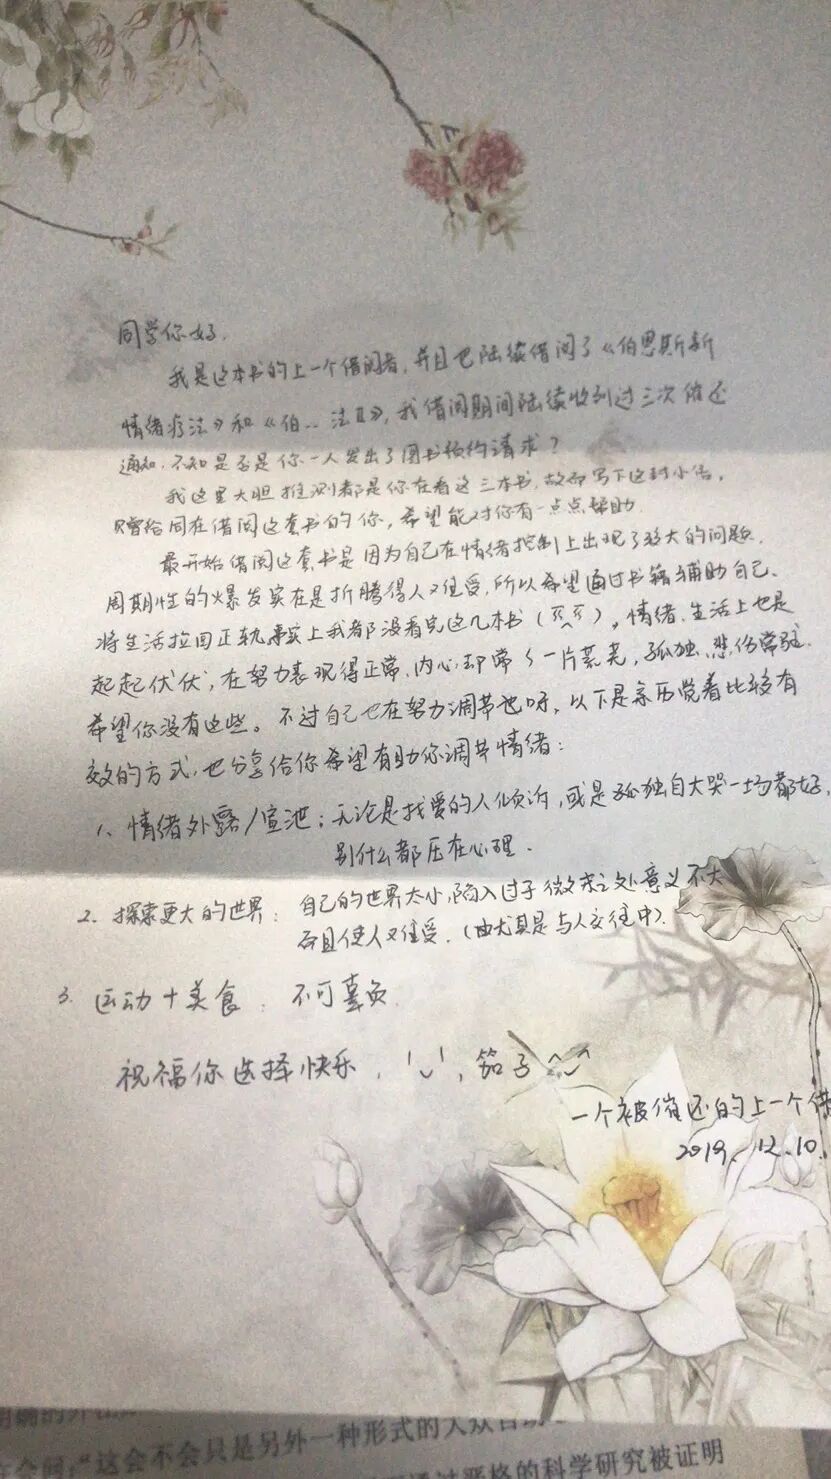 同学你好,
我是这本书的上一个借阅者,并且已陆续借阅了《伯恩斯新
情绪疗法》和《伯...法Ⅱ》,我借阅期间陆续收到过三次催还
通知,不知是否是你一人发出了图书预约请求?
我这里大胆推测都是你在看这三本书,故而写下这封小信,
赠给同在借阅这套书的你,希望能对你有一点点帮助.
最开始借阅这套书是因为自己在情绪控制上出现了较大的问题,
周期性的爆发实在是折腾得人又难受,所以希望通过书籍辅助自己、
将生活拉回正轨,事实上我都没看完这几本书(),情绪、生活上也是
起起伏伏,在努力表现得正常,内心却常常一片荒芜,孤独、悲伤常驻.
希望你没有这些。不过自己也在努力调节也呀,以下是亲历觉着比较有
效的方式,也分享给你希望有助你调节情绪:
1、情绪外露/宣泄:无论是找爱的人倾诉,或是孤独自大哭一场都好,
别什么都压在心理.
2. 探索更大的世界:自己的世界太小,陷入过于微末之处意义不大
而且使人又难受.(尤其是与人交往中).
3. 运动+美食:不可辜负.
祝福你选择快乐,茄子^◡^
一个被催还的上一个借
2019.12.10.
明确的
会问:“这会不会只是另外一种形式的大众自助
通过严格的科学研究被证明